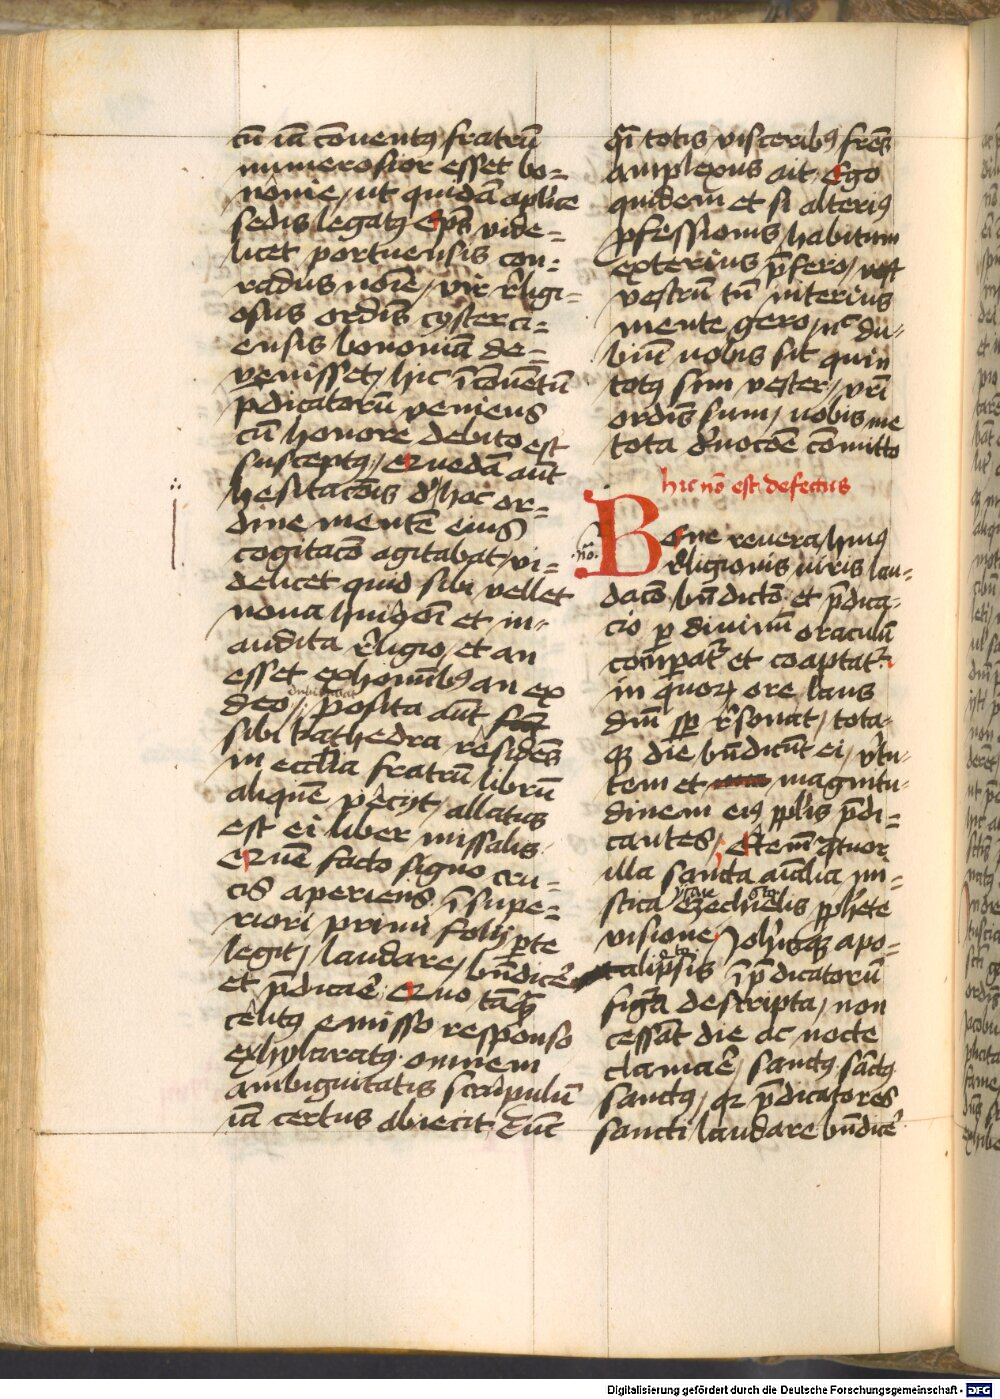 tū iā cōuentꝯ fratrū
numerosior esset bo=
nonie / ut quidā aplice
sedis legatꝯ Ep̄s vide=
licet portuensis con=
radus noīe / vir r̄ligi=
osus ordīs cysterci=
ensis bononiā de=
venisset / hic ī cōuētū
p̄dicatorū veniens
cū honore debito est
susceptꝯ / Quedā aūt
hesitacōis d̓ hoc or=
dine mentē eius
cogitacō agitabat / vi=
delicet quid sibi vellet
noua huiꝯmōi et in=
audita r̄ligio / et an
esset ex hominibꝯ an ex
deo / posita aūt
sibi kathedra residēs
in ecclīa fratrū librū
aliquē peciit / allatus
est ei liber missalis
Quē facto signo cru=
cis aperiens ī supe=
riori primi folij p̲te
legit / laudare / bn̄dicēr
et p̄dicaē Quo tāqꝫ
celitꝯ emisso responso
exhylaratꝯ omnem
ambiguitatis scrupulū
iā certus abiecit Tūc
qī totis visceribꝯ frēs
amplexus ait Ego
quidem et si alteriꝯ
ꝓfessionis habitum
exterius p̄fero /
vestrū tn̄ interius
mente gero / nͨ du=
biū uobis sit quin
totꝯ sim vester / vr̄i
ordīs sum / uobis me
tota d̓uocōe cōmitto
hic nō est defectus
Bene reuera huiꝯ
r̄ligionis uiris lau=
dacō bn̄dictō et p̄dica=
cio p̲ diuinū oraculū
cōpat᷑ et coaptat᷑
in quorꝝ ore laus
dn̄i sp̲ r̄sonat / tota=
qꝫ die bn̄dicūt ei / v̓tu=
tem et magnitu=
dinem eiꝯ pplīs p̄di=
cantes / Eteniꝫ quatuor
illa sancta aīalia mi=
stica Ezechielis pphete
visione Joh̄isqꝫ apo=
calipsis ī p̄dicatorū
figura descripta / non
cessāt die ac nocte
clamaē / sanctꝯ sāctꝯ
sanctꝯ / qꝫ p̄dicatores
sancti laudare bn̄dicēr
Digitalisierung gefördert durch die Deutsche Forschungsgemeinschaft - DFG